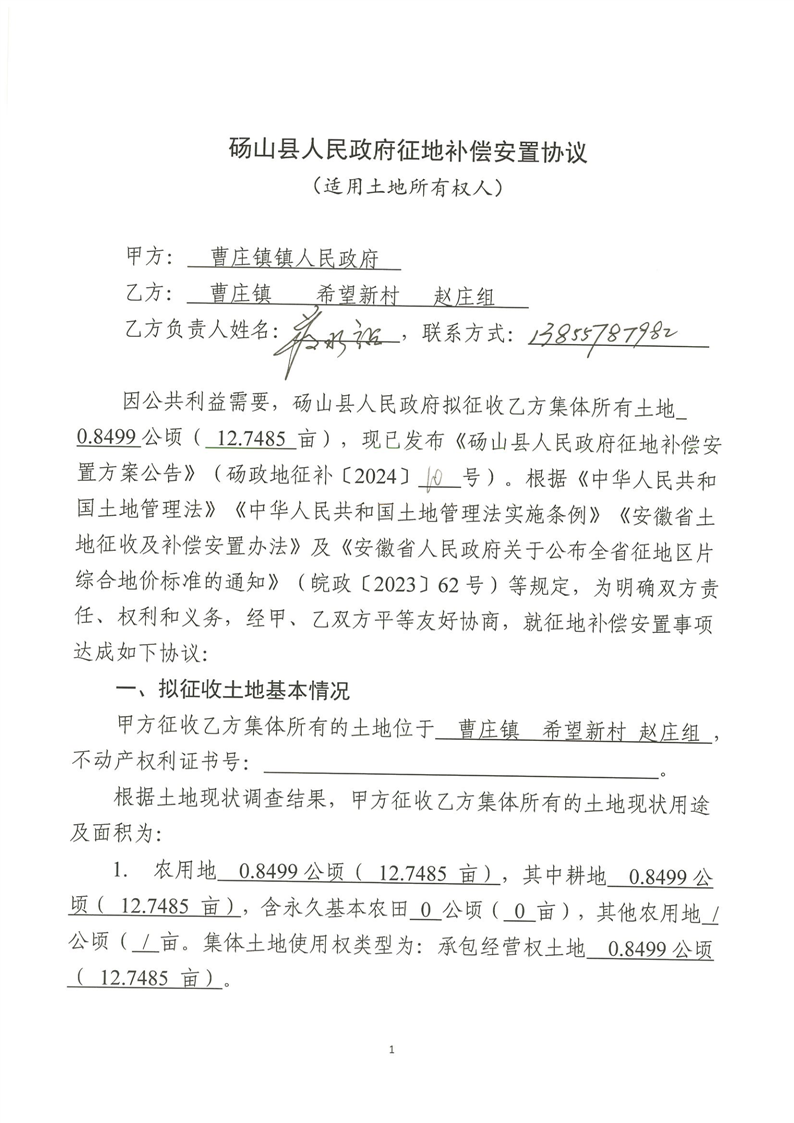 砀山县人民政府征地补偿安置协议
（适用土地所有权人）
甲方： 曹庄镇镇人民政府
乙方： 曹庄镇 希望新村 赵庄组
乙方负责人姓名： ，联系方式：13855787982
因公共利益需要，砀山县人民政府拟征收乙方集体所有土地
0.8499 公顷（ 12.7485 亩），现已发布《砀山县人民政府征地补偿安
置方案公告》（砀政地征补〔2024〕10 号）。根据《中华人民共和
国土地管理法》《中华人民共和国土地管理法实施条例》《安徽省土
地征收及补偿安置办法》及《安徽省人民政府关于公布全省征地区片
综合地价标准的通知》（皖政〔2023〕62 号）等规定，为明确双方责
任、权利和义务，经甲、乙双方平等友好协商，就征地补偿安置事项
达成如下协议：
一、拟征收土地基本情况
甲方征收乙方集体所有的土地位于 曹庄镇 希望新村 赵庄组 ，
不动产权利证书号： 。
根据土地现状调查结果，甲方征收乙方集体所有的土地现状用途
及面积为：
1. 农用地 0.8499 公顷（ 12.7485 亩），其中耕地 0.8499 公
顷（ 12.7485 亩），含永久基本农田 0 公顷（ 0 亩），其他农用地 /
公顷（ / 亩。集体土地使用权类型为：承包经营权土地 0.8499 公顷
（ 12.7485 亩）。
1